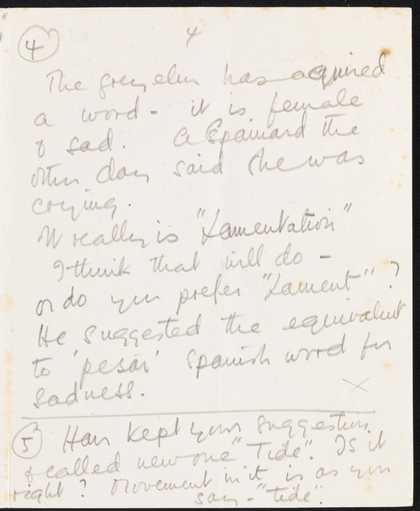 4
4
The grey elm has acquired
a word - it is female
& sad. A Spaniard the
other day said she was
crying.
It really is "Lamentation"
I think that will do -
or do you prefer "Lament"?
He suggested the equivalent
to 'pesar' Spanish word for
sadness.
x
5 Have kept your suggestion
& called new one "Tide". Is it
right? Movement in it is as you
say - "tide".